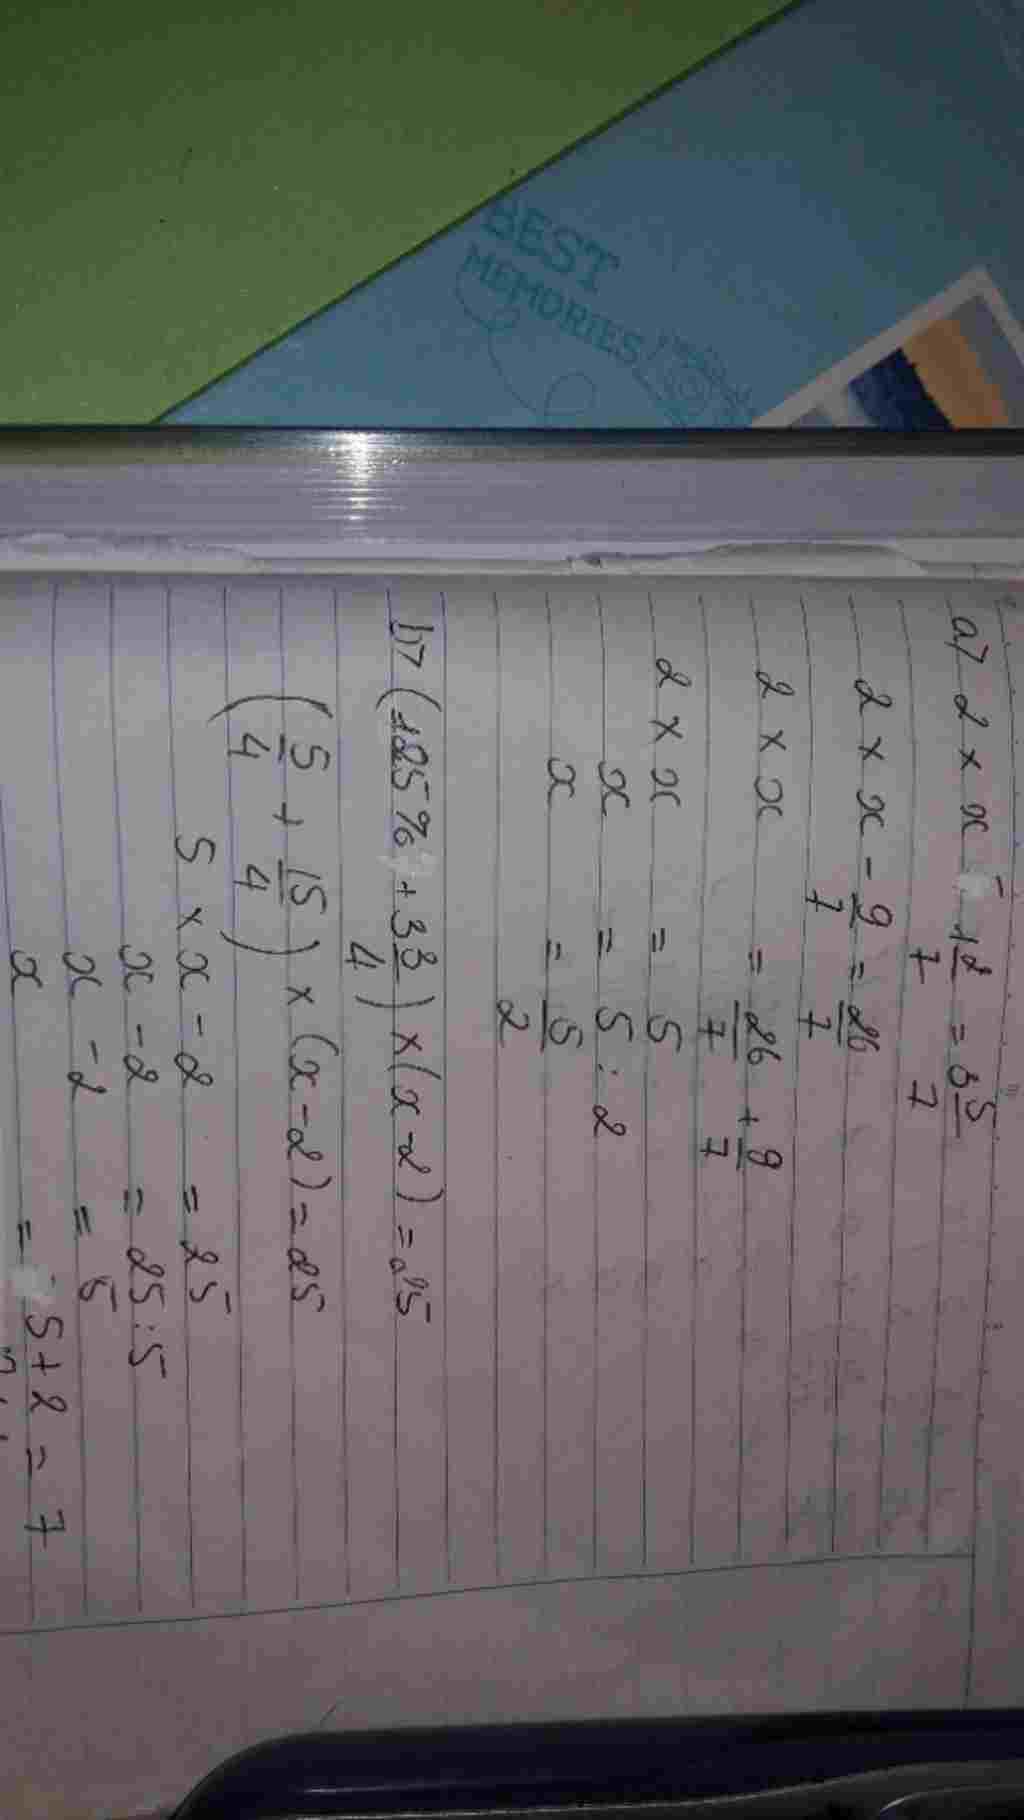 BEST
MEMORIES!
a) 2 × x - 1 2/7 = 3 5/7
2 × x - 9/7 = 26/7
2 × x = 26/7 + 9/7
2 × x = 5
x = 5 : 2
x = 5/2
b) (125% + 3 3/4) × (x - 2) = 25
(5/4 + 15/4) × (x - 2) = 25
5 × x - 2 = 25
x - 2 = 25 : 5
x - 2 = 5
x = 5 + 2 = 7